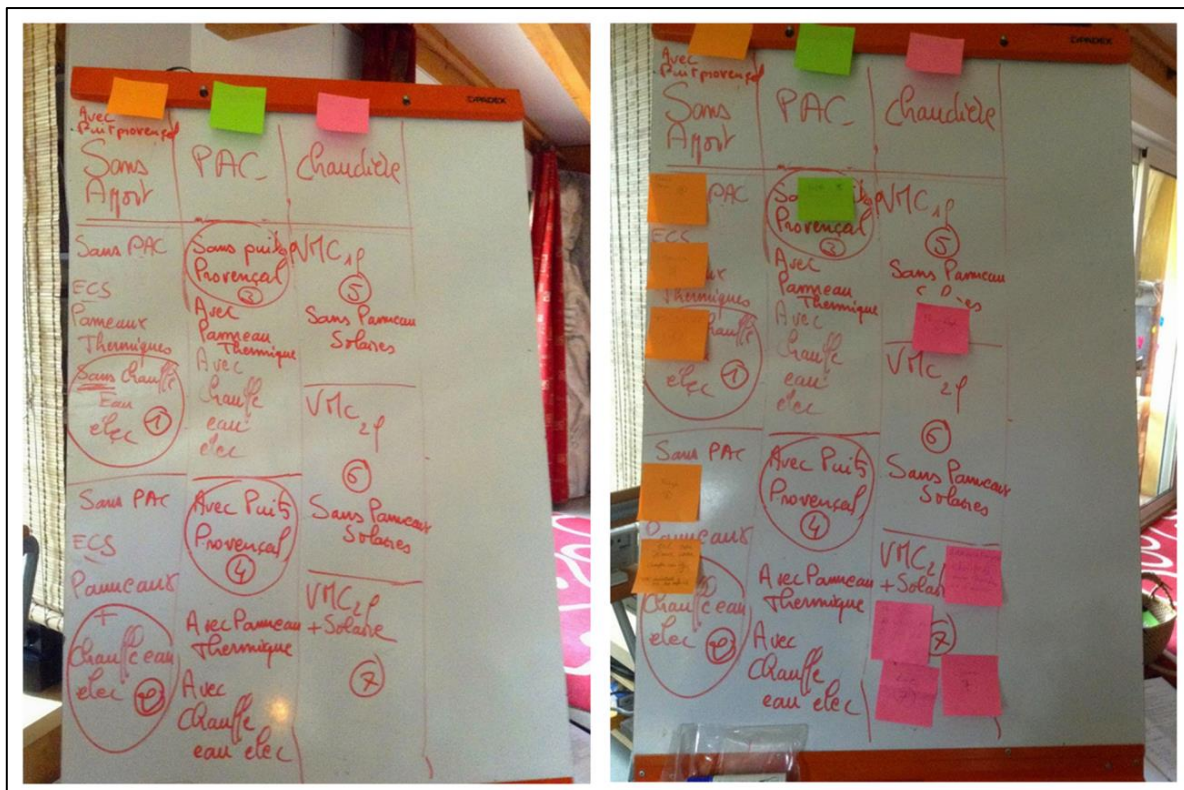 Avec
Puit provençal
Sans
Apport
PAC
Chaudière
Sans PAC
ECS
Panneaux
Thermiques
Sans chauffe
Eau
élec 1
Sans PAC
ECS
Panneaux
+
Chauffe eau
elec 2
Sans puits
Provençal
3
Avec
Panneau
Thermique
Avec
Chauffe
eau
élec
Avec Puits
Provençal
4
Avec Panneau
Thermique
Avec
Chauffe
eau elec
VMC 1f
5
Sans Panneau
Solaires
VMC 2f
6
Sans Panneaux
Solaires
VMC 2f
+ Solaire
7
Avec
Puit provençal
Sans
Apport
PAC
Chaudière
PAC
ECS
Thermiques
chauffe
élec 1
Sans PAC
Panneaux
Chauffe eau
elec 2
Provençal
3
Avec
Panneau
Thermique
Avec
Chauffe
eau
élec
Avec Puits
Provençal
4
Avec Panneau
Thermique
Avec
Chauffe
eau elec
VMC 1f
5
Sans Panneau
VMC 2f
6
Sans Panneaux
Solaires
VMC 2
+ Solaire
7
7